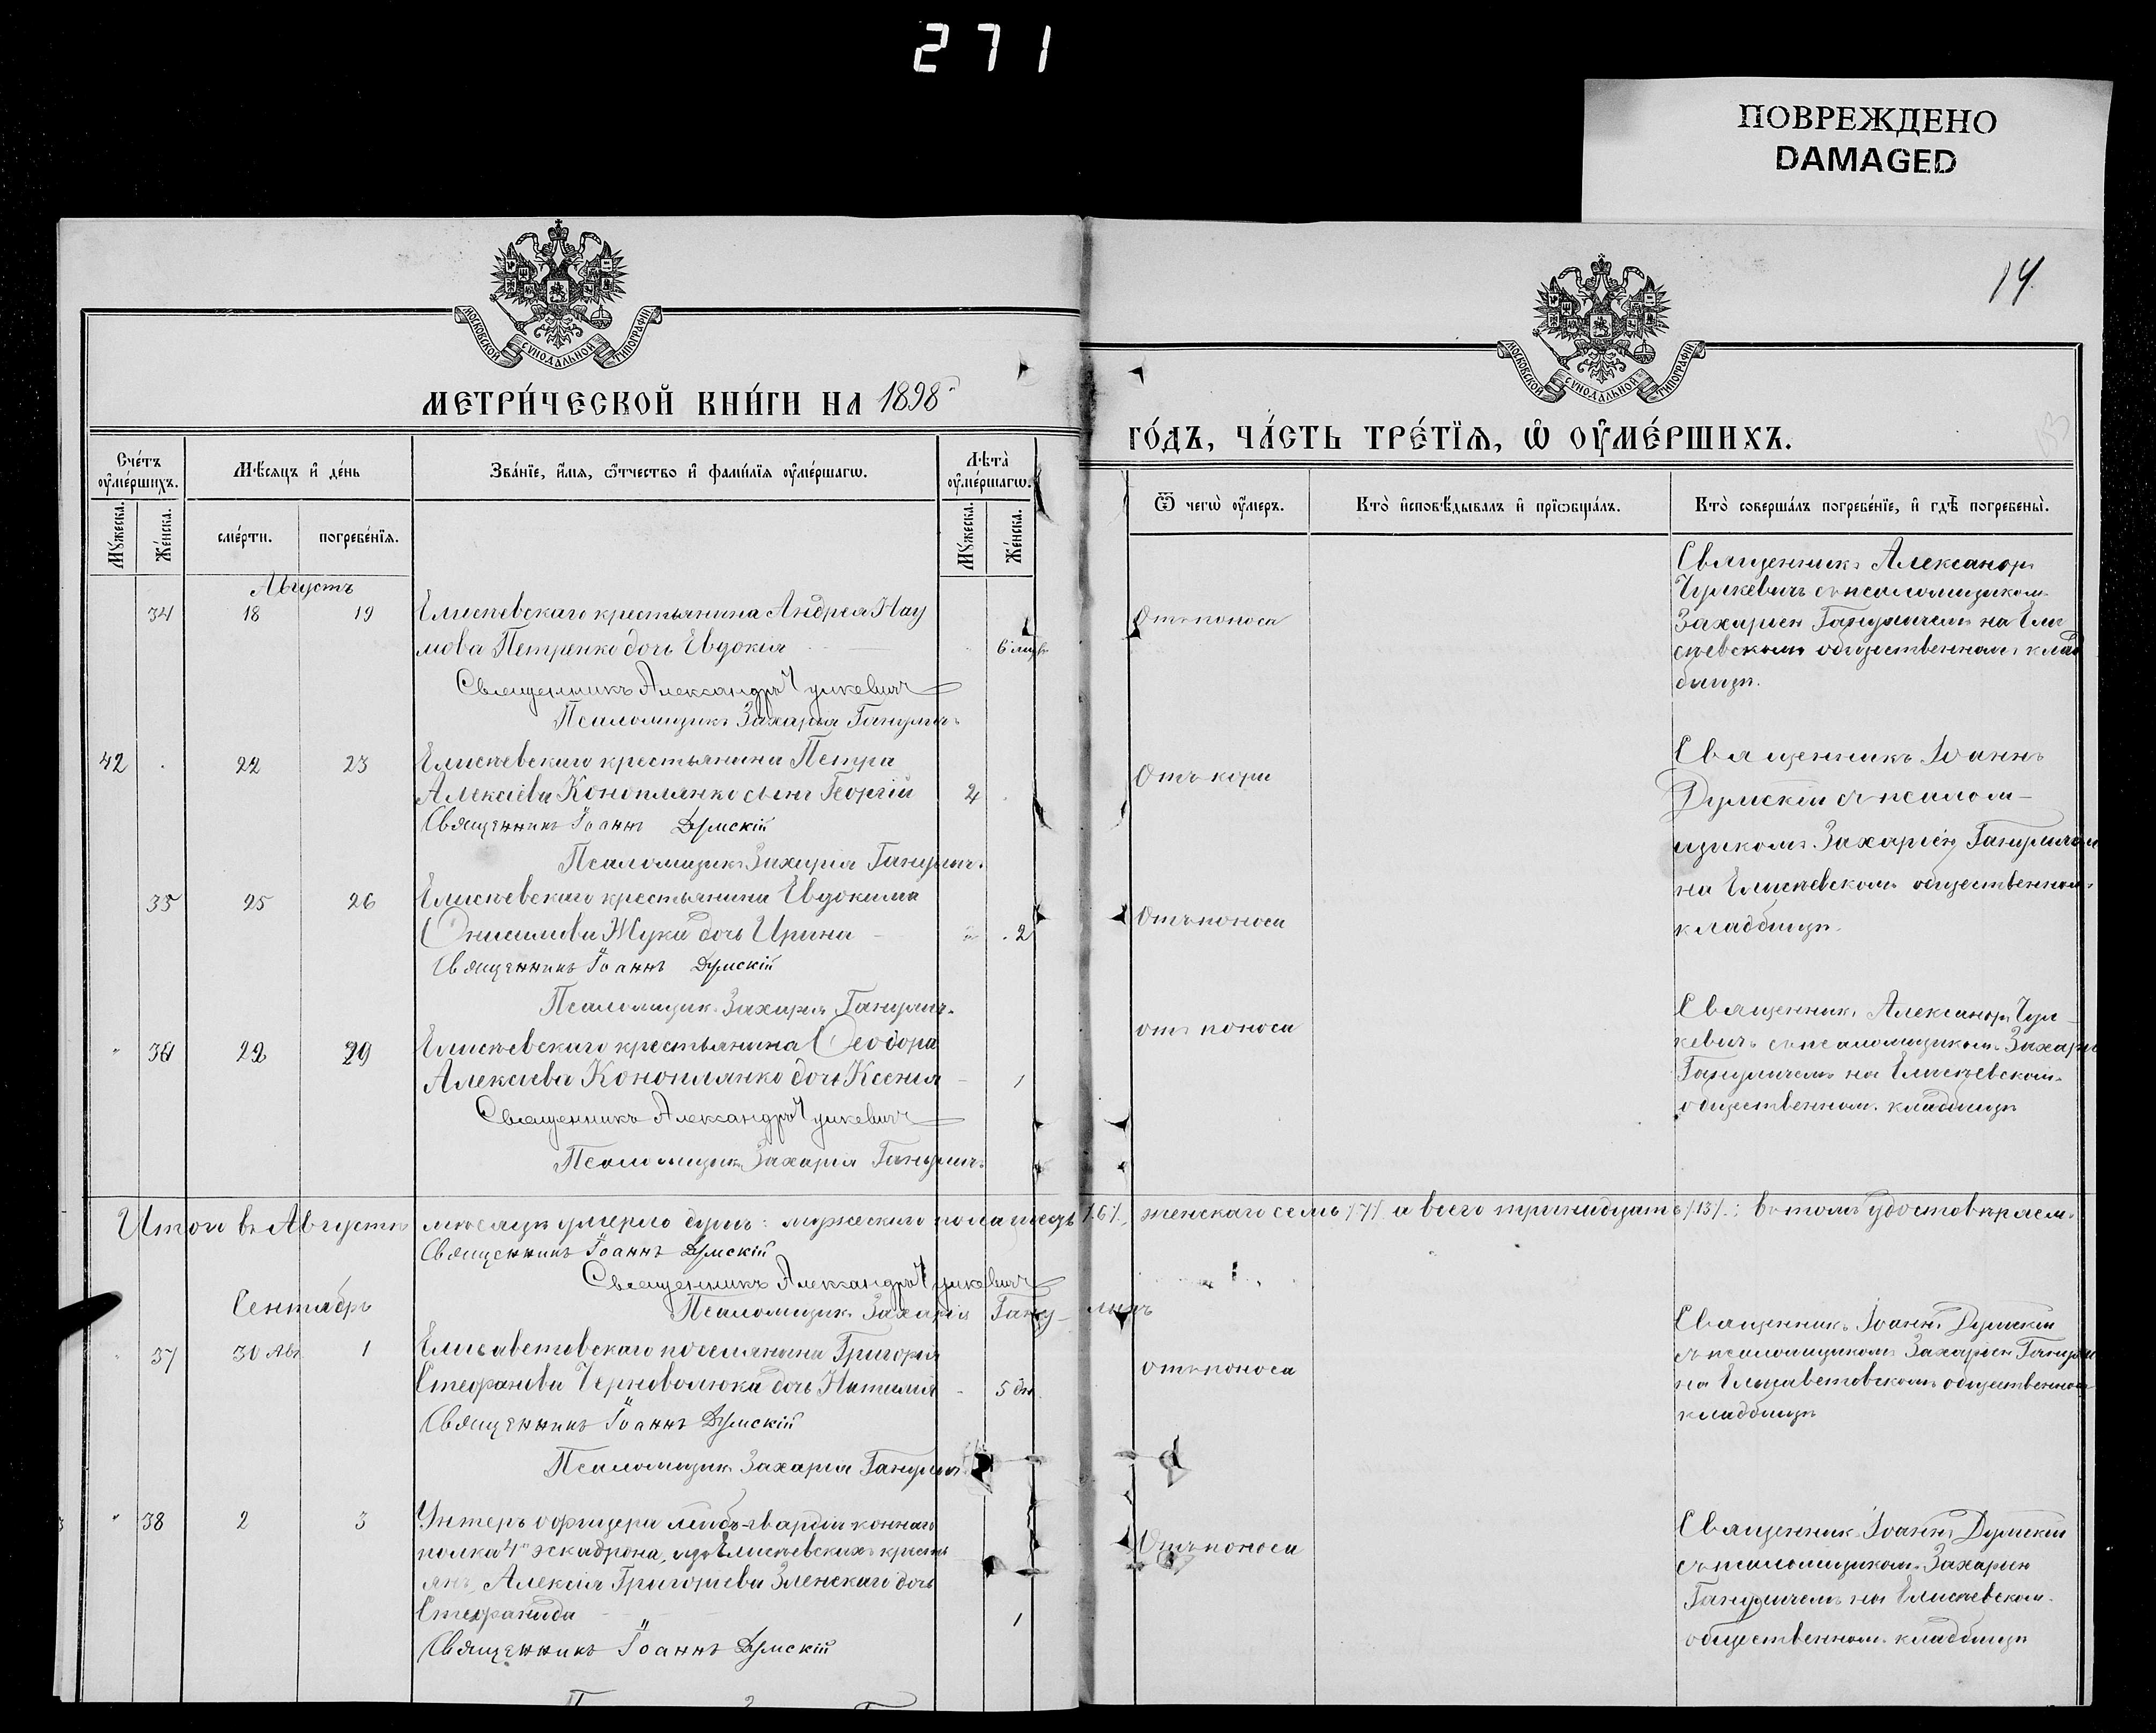 271
ПОВРЕЖДЕНО
DAMAGED
14
МОСКОВСКОЙ СѴНОДАЛЬНОЙ ТИПОГРАФІИ
МОСКОВСКОЙ СѴНОДАЛЬНОЙ ТИПОГРАФІИ
МЕТРИ́ЧЕСКОЙ КНИ́ГИ НА 1898
ГО́ДЪ, ЧА́СТЬ ТРЕ́ТЇѦ, Ѡ҆ ОУ҆МЕ́РШИХЪ.
Сче́тъ оу҆ме́ршихъ.
Мѣ́сяцъ и҆ де́нь
Зва́нїе, и҆́мя, ѻ҆́тчество и҆ фами́лїя оу҆ме́ршагѡ.
Лѣ́та оу҆ме́ршагѡ.
Ѿ чегѡ̀ оу҆́меръ.
Кто̀ и҆сповѣ́дывалъ и҆ прїѡбща́лъ.
Кто̀ соверша́лъ погребе́нїе, и҆ гдѣ̀ погребены̀.
Му́жеска. Же́нска. сме́рти. погребе́нїя. Му́жеска. Же́нска.
Августъ
34 18 19 Елисѣевскаго крестьянина Андрея Нау
мова Петренко дочь Евдокія 6 мѣс
Священникъ Александръ Чулкевичъ
Псаломщикъ Захарія Ганулич
Отъ поноса
Священникъ Александръ
Чулкевичъ съ псаломщикомъ
Захаріею Гануличемъ на Ели
сѣевскомъ общественномъ клад
бищѣ.
42 22 23 Елисѣевскаго крестьянина Петра
Алексіева Коноплянко сынъ Георгій 2
Священникъ Іоаннъ Думскій
Псаломщикъ Захарія Гануличъ.
Отъ кори
Священникъ Іоаннъ
Думскій съ псалом-
щикомъ Захаріею Гануличем
на Елисѣевскомъ общественномъ
кладбищѣ.
35 25 26 Елисѣевскаго крестьянина Евдокима
Онисимова Жука дочь Ирина 2
Священникъ Іоаннъ Думскій
Псаломщикъ Захарія Гануличъ.
Отъ поноса
36 29 Елисѣевскаго крестьянина Ѳеодора
Алексіева Коноплянко дочь Ксенія 1
Священникъ Александръ Чулкевичъ
Псаломщикъ Захарія Гануличъ.
отъ поноса
Священникъ Александръ Чул
кевичъ съ псаломщикомъ Захарі
Гануличемъ на Елисѣевскомъ
общественномъ кладбищѣ
Итого въ Августѣ мѣсяцѣ умерло душъ: мужескаго пола шесть /6/, женскаго семь /7/ а всего тринадцать /13/: въ томъ удостовѣряемъ.
Священникъ Іоаннъ Думскій
Священникъ Александръ Чулкевичъ
Псаломщикъ Захарія Гану-личъ
Сентябрь
37 30 Авг 1 Елисаветовскаго поселянина Григорія
Стефанова Черноволюка дочь Наталія 5 дн.
Священникъ Іоаннъ Думскій
Псаломщикъ Захарія Ганулич
отъ поноса
Священникъ Іоаннъ Думскій
съ псаломщикомъ Захаріею
на Елисаветовскомъ общественномъ
кладбищѣ
38 2 3 Унтеръ офицера лейбъ-гвардіи коннаго
полка 4го эскадрона, изъ Елисѣевскихъ кресть
янъ, Алексія Григоріева Зленскаго дочь
Стефанида 1
Священникъ Іоаннъ Думскій
Отъ поноса
Священникъ Іоаннъ Думскій
съ псаломщикомъ Захаріею
Гануличемъ на Елисѣевскомъ
общественномъ кладбищѣ